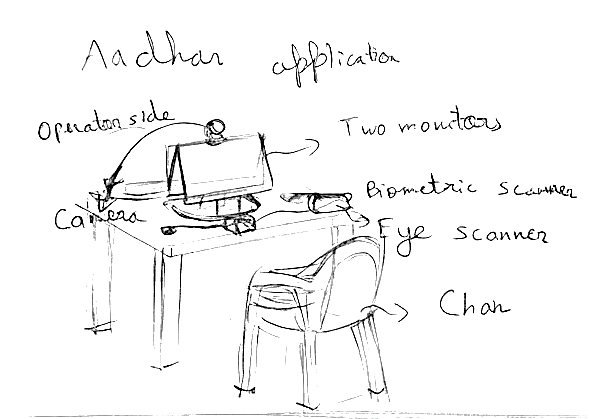 Aadhar application
Operator side
Two monitors
Biometric scanner
Camera
Eye scanner
Chair